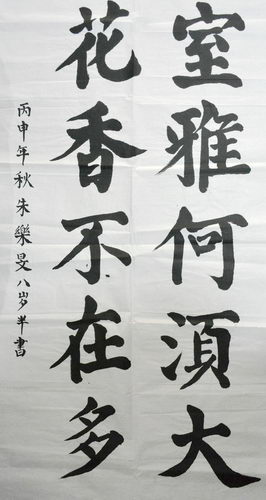 室雅何須大
花香不在多
丙申年秋朱樂旻八岁半書